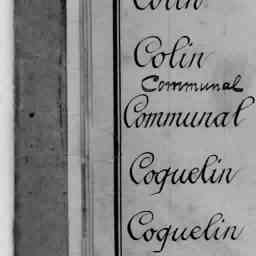 Colin
Colin
Communal
Communal
Coquelin
Coquelin